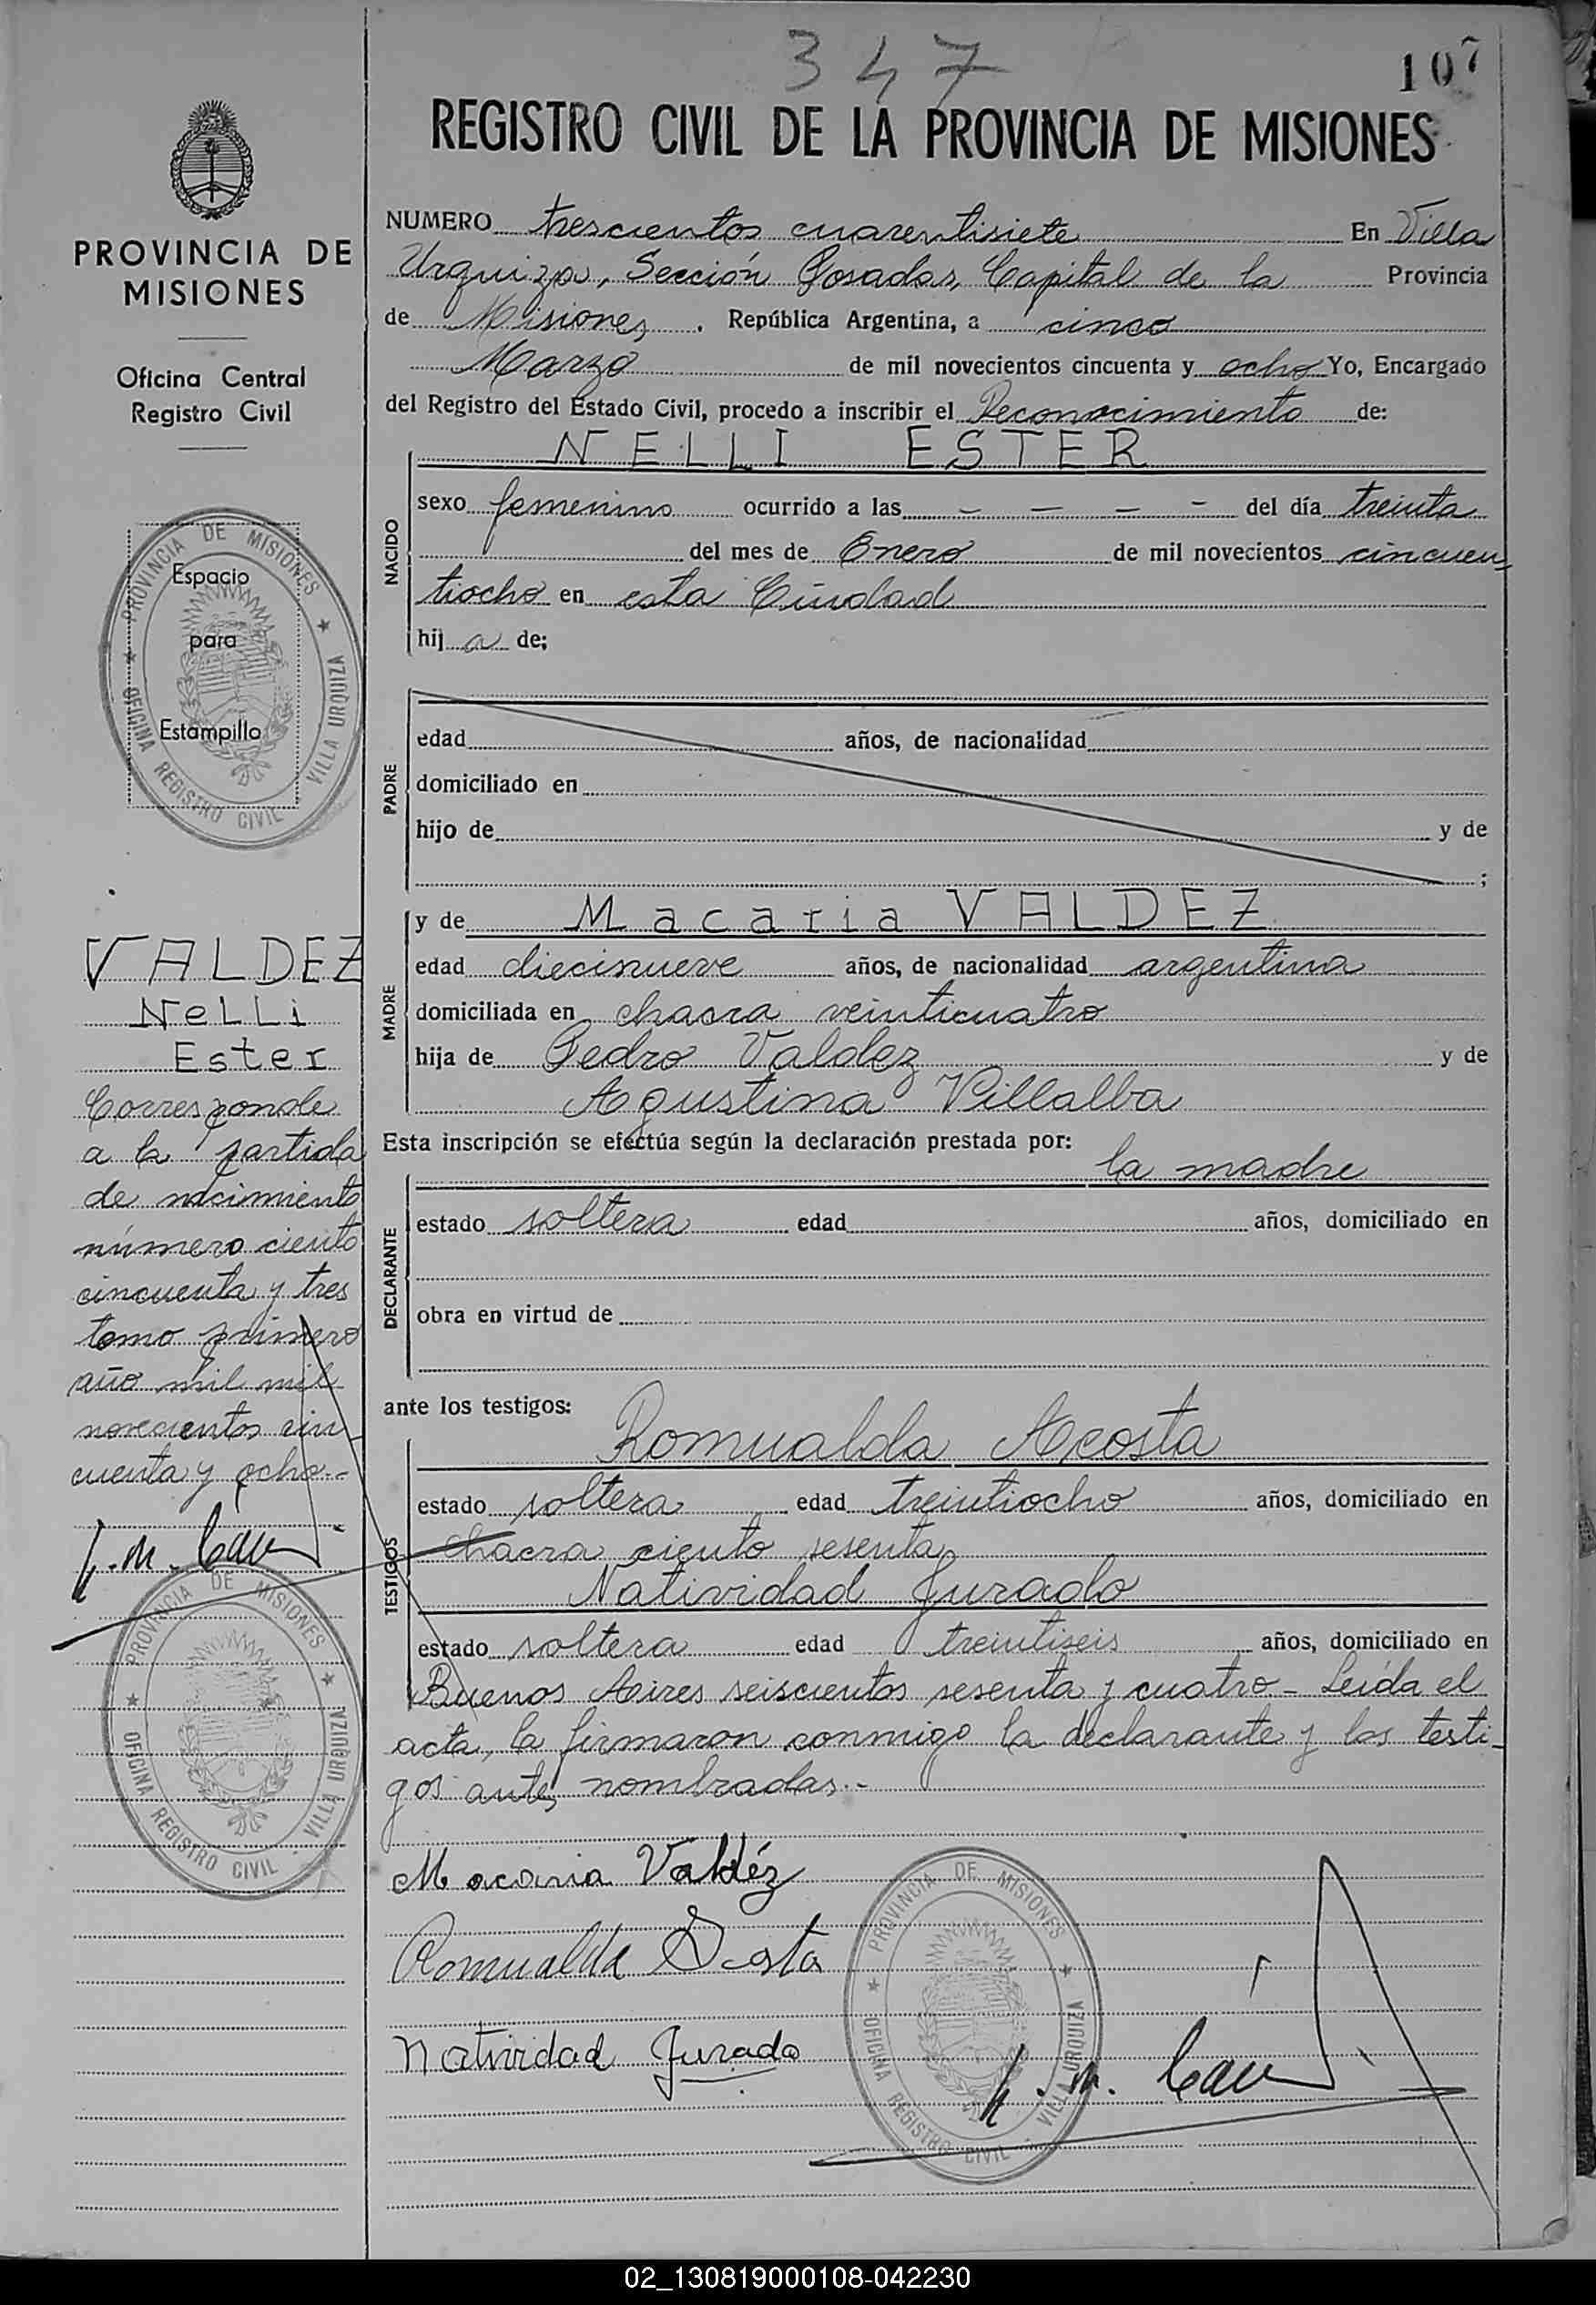 347
107
REGISTRO CIVIL DE LA PROVINCIA DE MISIONES
PROVINCIA DE
MISIONES
Oficina Central
Registro Civil
PROVINCIA DE MISIONES
OFICINA REGISTRO CIVIL - VILLA URQUIZA
Espacio
para
Estampillo
VALDEZ
Nelli
Ester
Corresponde
a la partida
de nacimiento
número ciento
cincuenta y tres
tomo primero
año mil mil
novecientos cin
cuenta y ocho.-
PROVINCIA DE MISIONES
OFICINA REGISTRO CIVIL - VILLA URQUIZA
NUMERO trescientos cuarentisiete En Villa
Urquiza, Sección Posadas, Capital de la Provincia
de Misiones, República Argentina, a cinco
Marzo de mil novecientos cincuenta y ocho Yo, Encargado
del Registro del Estado Civil, procedo a inscribir el Reconocimiento de:
NELLI ESTER
NACIDO
sexo femenino ocurrido a las - - - - del día treinta
del mes de Enero de mil novecientos cincuen-
tiocho en esta Ciudad
hij a de;
PADRE
edad años, de nacionalidad
domiciliado en
hijo de y de
;
MADRE
y de Macaria VALDEZ
edad diecinueve años, de nacionalidad argentina
domiciliada en chacra veinticuatro
hija de Pedro Valdez y de
Agustina Villalba
Esta inscripción se efectúa según la declaración prestada por:
la madre
DECLARANTE
estado soltera edad años, domiciliado en
obra en virtud de
ante los testigos:
Romualda Acosta
TESTIGOS
estado soltera edad treintiocho años, domiciliado en
chacra ciento sesenta
Natividad Jurado
estado soltera edad treintiseis años, domiciliado en
Buenos Aires seiscientos sesenta y cuatro.- Leída el
acta, la firmaron conmigo la declarante y los testi-
gos antes nombradas.-
Macaria Valdéz
Romualda Acosta
Natividad Jurado
PROVINCIA DE MISIONES
OFICINA REGISTRO CIVIL - VILLA URQUIZA
02_130819000108-042230